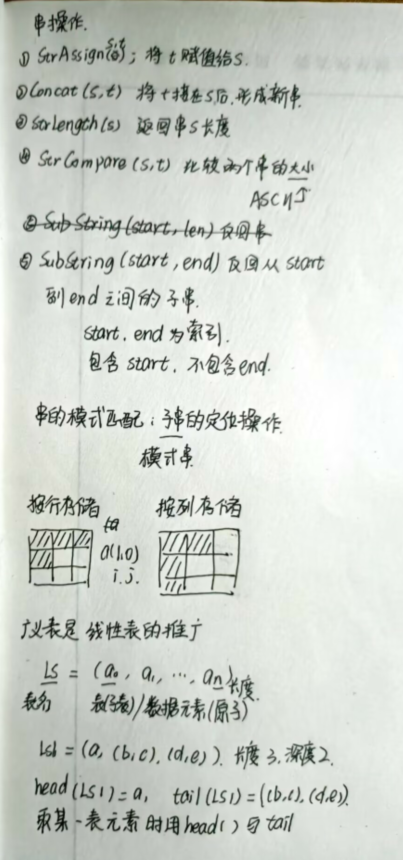 串操作.
① StrAssign(s,t); 将t赋值给S.
② Concat(s,t) 将t接在S后.形成新串.
③ StrLength(s) 返回串S长度
④ StrCompare(s,t) 比较两个串的大小
ASCII
⑤ SubString(start, len) 返回串
⑤ SubString(start, end) 返回从start
到end之间的子串.
start, end为索引.
包含start, 不包含end.
串的模式匹配: 子串的定位操作.
模式串
按行存储 按列存储
a(1,0)
i. j.
广义表是 线性表的推广
LS = (a₀, a₁, ..., an) 长度
表名 表(子表)/数据元素(原子)
LS1 = (a, (b,c), (d,e)). 长度3, 深度2.
head(LS1)=a, tail(LS1)=((b,c),(d,e)).
取某一表元素时用head()与tail